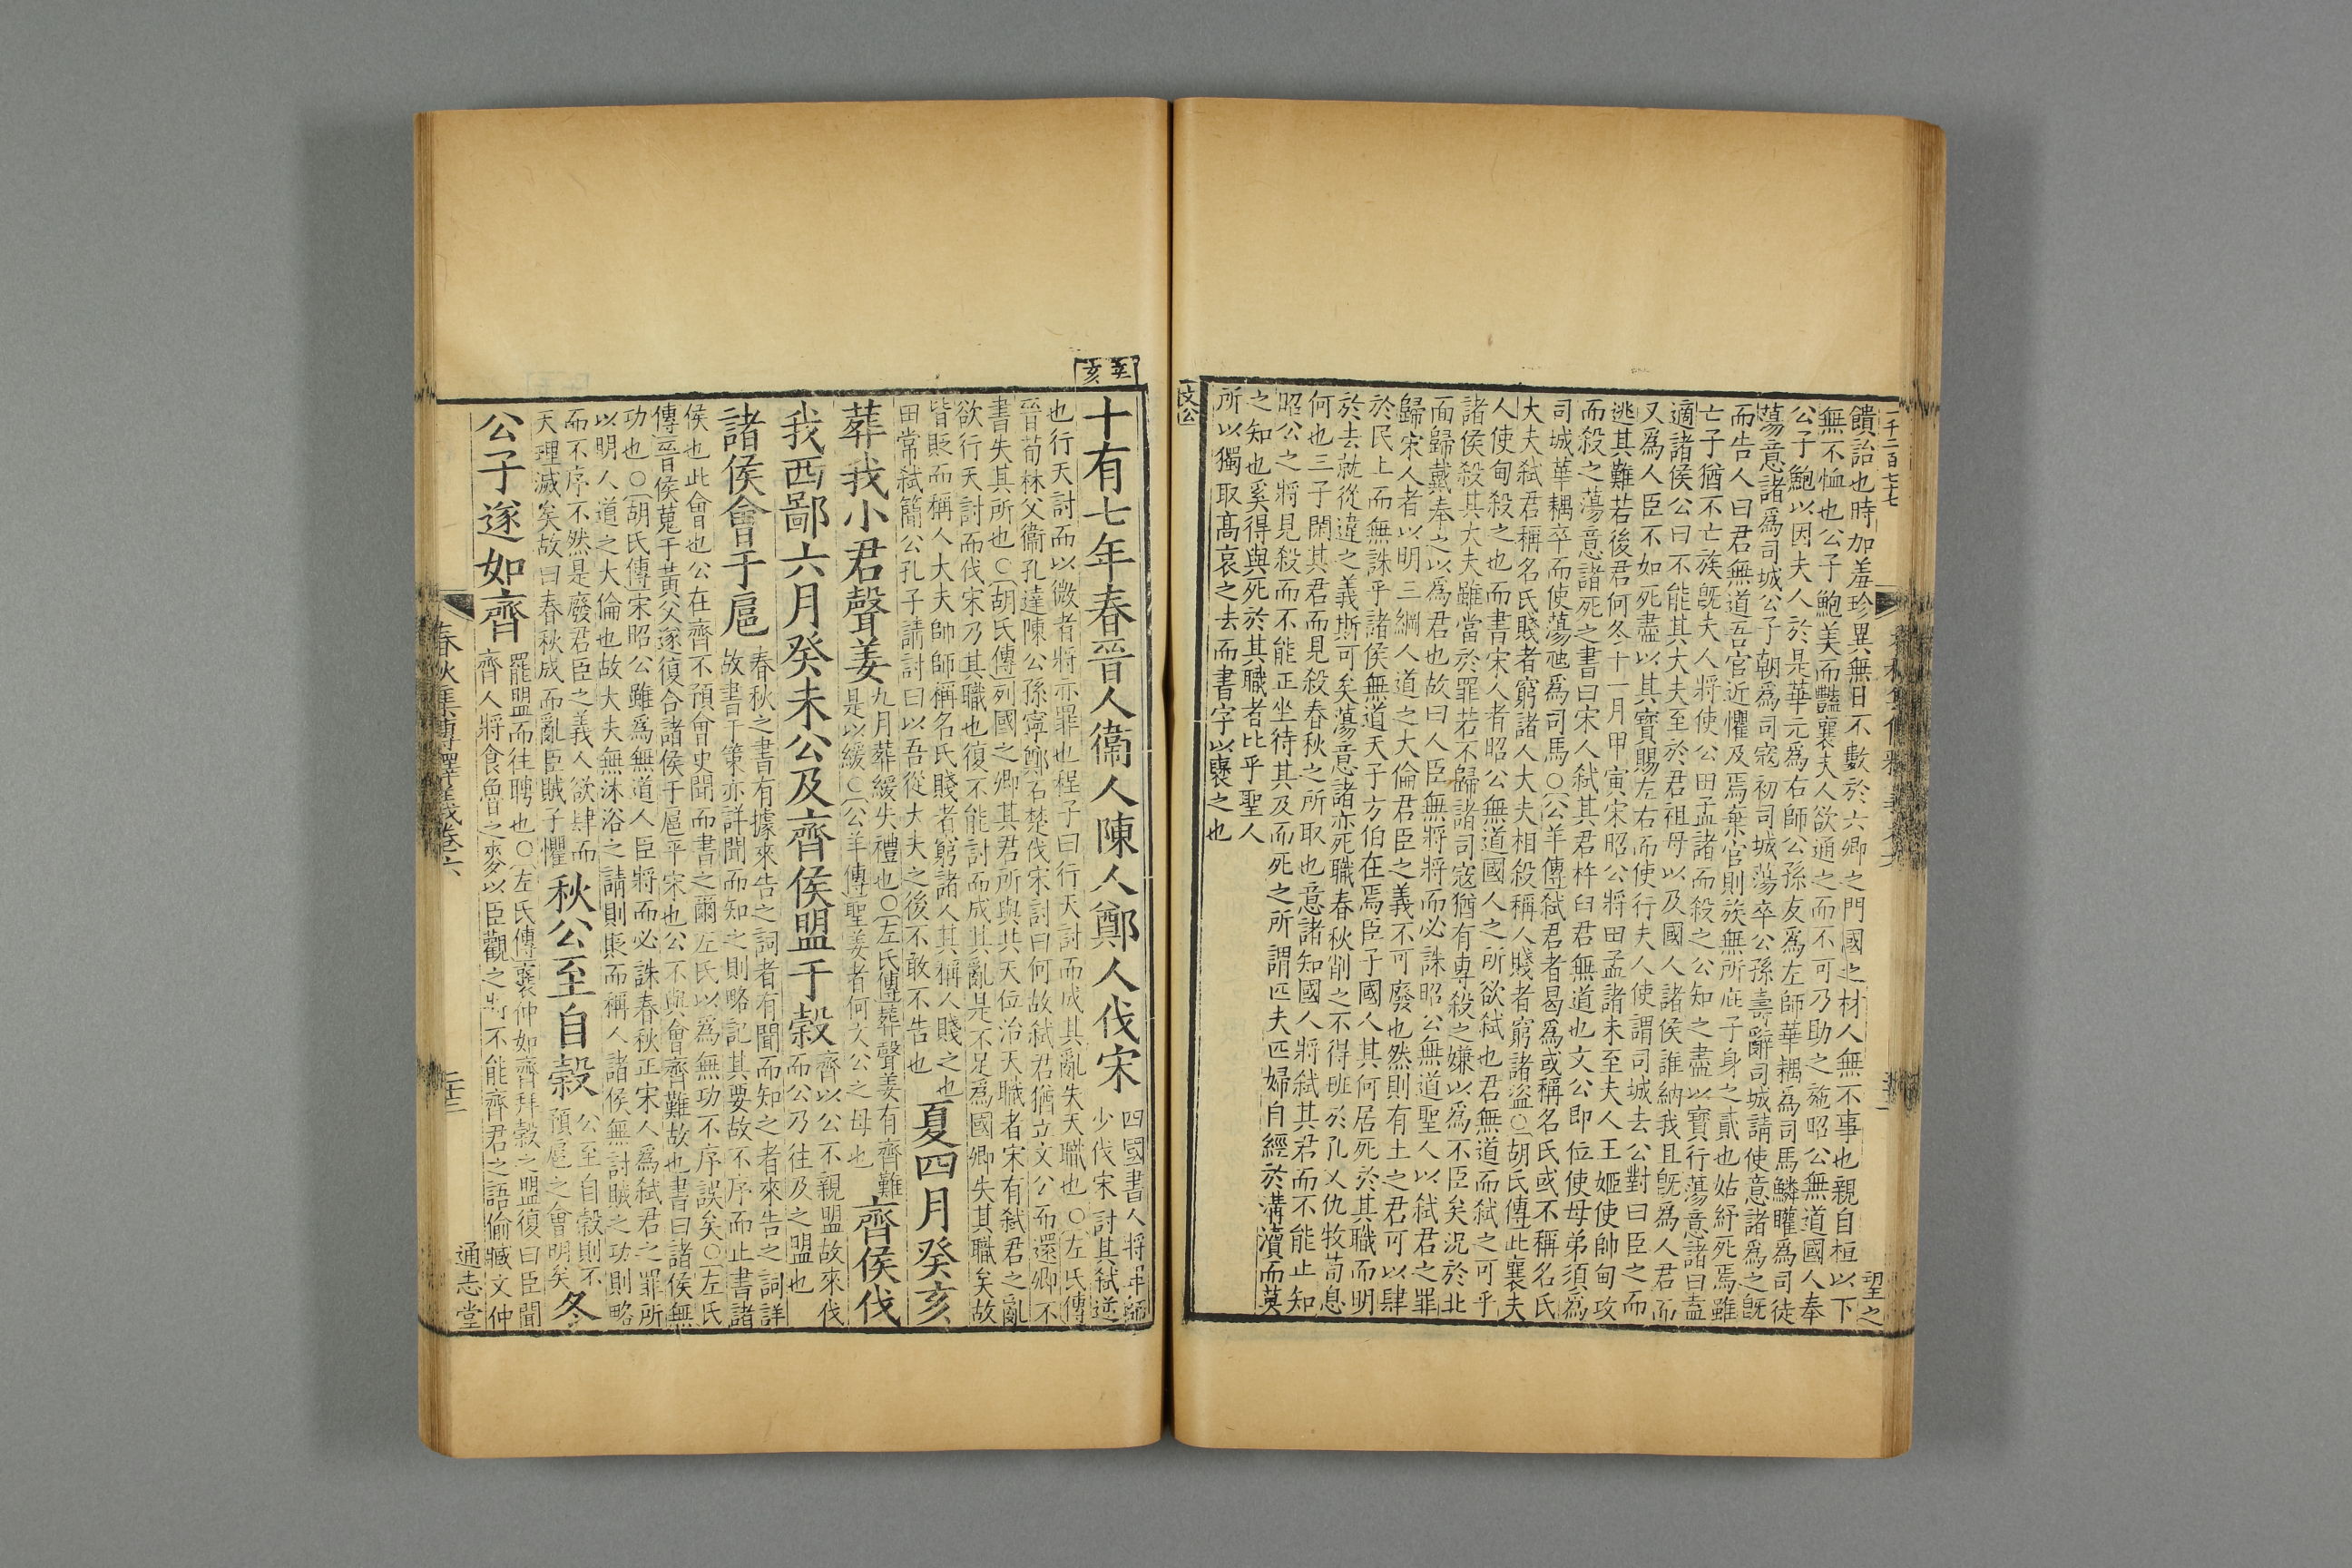 一千二百七七
饋詒也時加羞珍異無日不數於六卿之門國之材人無不事也親自桓以下
望之
無不恤也公子鮑美而豔襄夫人欲通之而不可乃助之施昭公無道國人奉
公子鮑以因夫人於是華元爲右師公孫友爲左師華耦爲司馬鱗鱹爲司徒
蕩意諸爲司城公子朝爲司寇初司城蕩卒公孫壽辭司城請使意諸爲之旣
而告人曰君無道吾官近懼及焉棄官則族無所庇子身之貳也姑紓死焉雖
亡子猶不亡族旣夫人將使公田孟諸而殺之公知之盡以寶行蕩意諸曰盍
適諸侯公曰不能其大夫至於君祖母以及國人諸侯誰納我且旣爲人君而
又爲人臣不如死盡以其寶賜左右而使行夫人使謂司城去公對曰臣之而
逃其難若後君何冬十一月甲寅宋昭公將田孟諸未至夫人王姬使帥甸攻
而殺之蕩意諸死之書曰宋人弒其君杵臼君無道也文公即位使母弟須爲
司城華耦卒而使蕩虺爲司馬○公羊傳弒君者曷爲或稱名氏或不稱名氏
大夫弒君稱名氏賤者窮諸人大夫相殺稱人賤者窮諸盜○胡氏傳此襄夫
人使甸殺之也而書宋人者昭公無道國人之所欲弒也君無道而弒之可乎
諸侯殺其大夫雖當於罪若不歸諸司寇猶有專殺之嫌以爲不臣矣況於北
面歸戴奉之以爲君也故曰人臣無將將而必誅昭公無道聖人以弒君之罪
歸宋人者以明三綱人道之大倫君臣之義不可廢也然則有土之君可以肆
於民上而無誅乎諸侯無道天子方伯在焉臣子國人其何居死於其職而明
於去就從違之義斯可矣蕩意諸亦死職春秋削之不得班於孔父仇牧荀息
何也三子閑其君而見殺春秋之所取也意諸知國人將弒其君而不能止知
昭公之將見殺而不能正坐待其及而死之所謂匹夫匹婦自經於溝瀆而莫
之知也奚得與死於其職者比乎聖人
所以獨取高哀之去而書字以褒之也
文公
辛亥
十有七年春晉人衞人陳人鄭人伐宋
四國書人將卑師
少伐宋討其弒逆
也行天討而以微者將亦罪也程子曰行天討而成其亂失天職也○左氏傳
晉荀林父衞孔達陳公孫寧鄭石楚伐宋討曰何故弒君猶立文公而還卿不
書失其所也○胡氏傳列國之卿其君所與共天位治天職者宋有弒君之亂
欲行天討而伐宋乃其職也復不能討而成其亂是不足爲國卿失其職矣故
皆貶而稱人大夫帥師稱名氏賤者窮諸人其稱人賤之也
田常弒簡公孔子請討曰以吾從大夫之後不敢不告也
夏四月癸亥
葬我小君聲姜
九月葬緩失禮也○左氏傳葬聲姜有齊難
是以緩○公羊傳聖姜者何文公之母也
齊侯伐
我西鄙六月癸未公及齊侯盟于穀
齊以公不親盟故來伐
而公乃往及之盟也
諸侯會于扈
春秋之書有據來告之詞者有聞而知之者來告之詞詳
故書于策亦詳聞而知之則略記其要故不序而止書諸
侯也此會也公在齊不預會史聞而書之爾左氏以爲無功不序誤矣○左氏
傳晉侯蒐于黃父遂復合諸侯于扈平宋也公不與會齊難故也書曰諸侯無
功也○胡氏傳宋昭公雖爲無道人臣將而必誅春秋正宋人爲弒君之罪所
以明人道之大倫也故大夫無沐浴之請則貶而稱人諸侯無討賊之功則略
而不序不然是廢君臣之義人欲肆而
天理滅矣故曰春秋成而亂臣賊子懼
秋公至自穀
公至自穀則不
預扈之會明矣
冬
公子遂如齊
罷盟而往聘也○左氏傳襄仲如齊拜穀之盟復曰臣聞
齊人將食魯之麥以臣觀之將不能齊君之語偷臧文仲
春秋集傳釋義卷六
二十三
通志堂